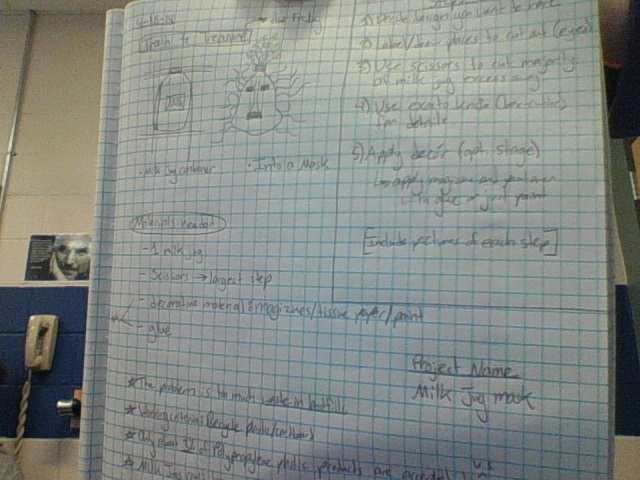 4-18-18
Trash to Treasure
Due Friday
Milk
• Milk Jug container
• Into a Mask
Steps
1) Choose design you want to have
2) Label/draw places to cut out (eyes)
3) Use scissors to cut majority
of milk jug excess away
4) Use exacto knife (box-cutter)
for details
5) Apply decór (opt. stage)
↳ apply magazine and
with glue or just paint
[Include pictures of each step]
Materials needed
- 1 milk jug
- Scissors → largest step
- decorative material: magizines/tissue paper/paint
- glue
Project Name
Milk Jug mask
* The problem is to much waste in landfills
* Recycle plastic/cardboard
* Only about of Polypropylene plastic products are
* Milk Jug